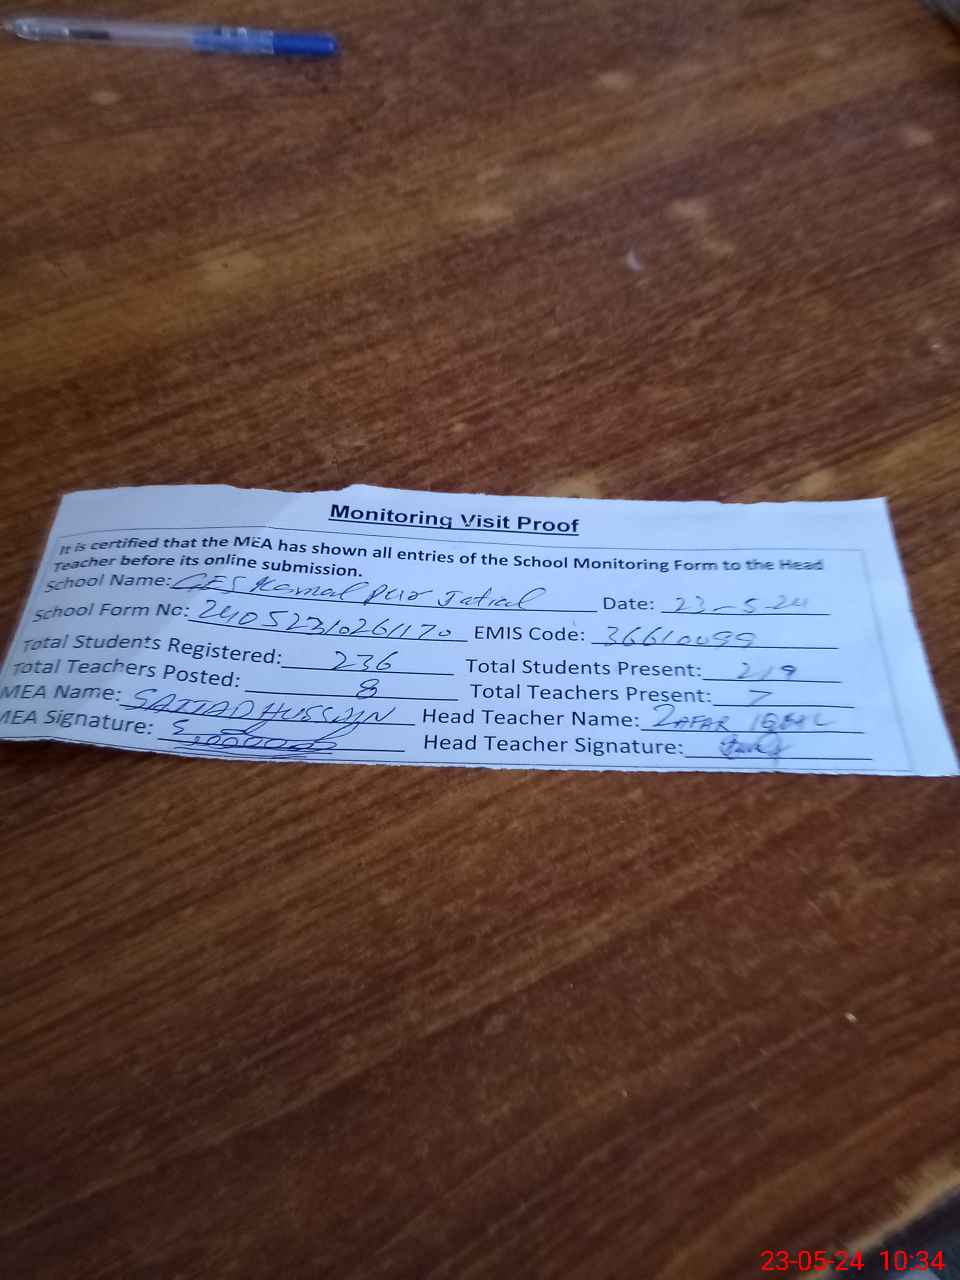 Monitoring Visit Proof
It is certified that the MEA has shown all entries of the School Monitoring Form to the Head
Teacher before its online submission.
School Name: GES Kamal Pur Jatial Date: 23-5-24
School Form No: 24052310261170 EMIS Code: 36610099
Total Students Registered: 236 Total Students Present: 219
Total Teachers Posted: 8 Total Teachers Present: 7
MEA Name: SAJJAD HUSSAIN Head Teacher Name: ZAFAR IQBAL
MEA Signature: Head Teacher Signature:
23-05-24 10:34